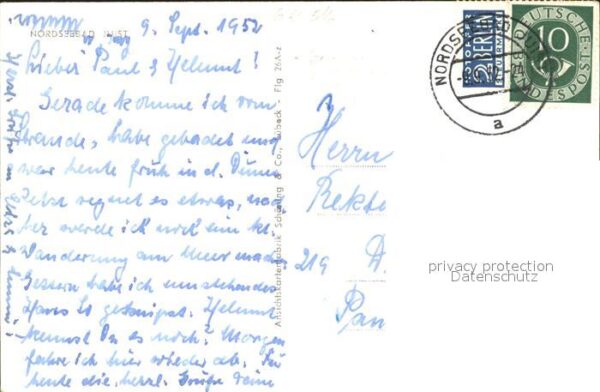 NORDSEEBAD JUIST
9. Sept. 1952
Lieber Paul & Helmut!
Gerade komme ich vom
Strande, habe gebadet und
war heute früh in d. Dünen
Jetzt regnet es etwas,
werde ich noch ein kl.
Wanderung am Meer mach
Gestern habe ich umstehendes
Haus geknipst. Helmut
kennst Du es noch? Morgen
fahre ich hier wieder ab. Für
heute die herzl. Grüße Deine
Ansichtskartenfabrik Schöning & Co., Lübeck - Flg 26A-z
Herrn
Rekto
219
Pan
NOTOPFER
2 BERLIN
STEUERMARKE
NORDSEEBAD JUIST
a
DEUTSCHE
10
BUNDESPOST
privacy protection
Datenschutz